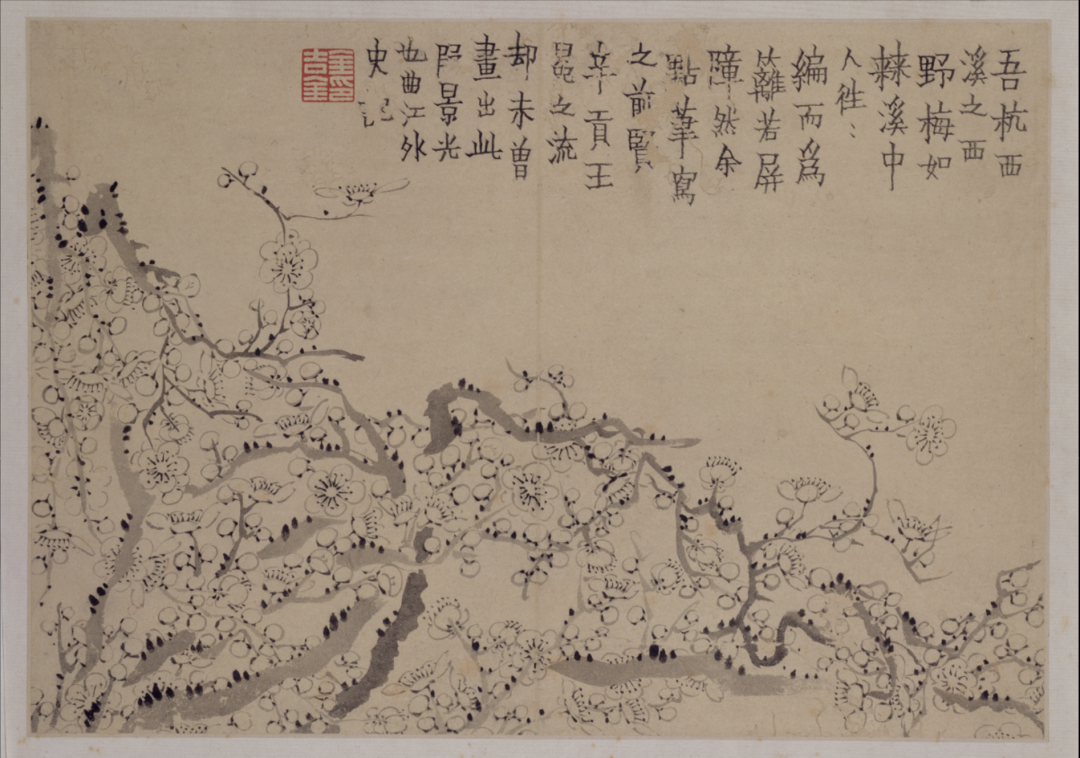 吾杭西
溪之西
野梅如
棘溪中
人徃〻
編而爲
籬若屏
障然余
點筆寫
之前賢
辛貢王
冕之流
却未曾
畫出此
段景光
也曲江外
史記
金印
吉金